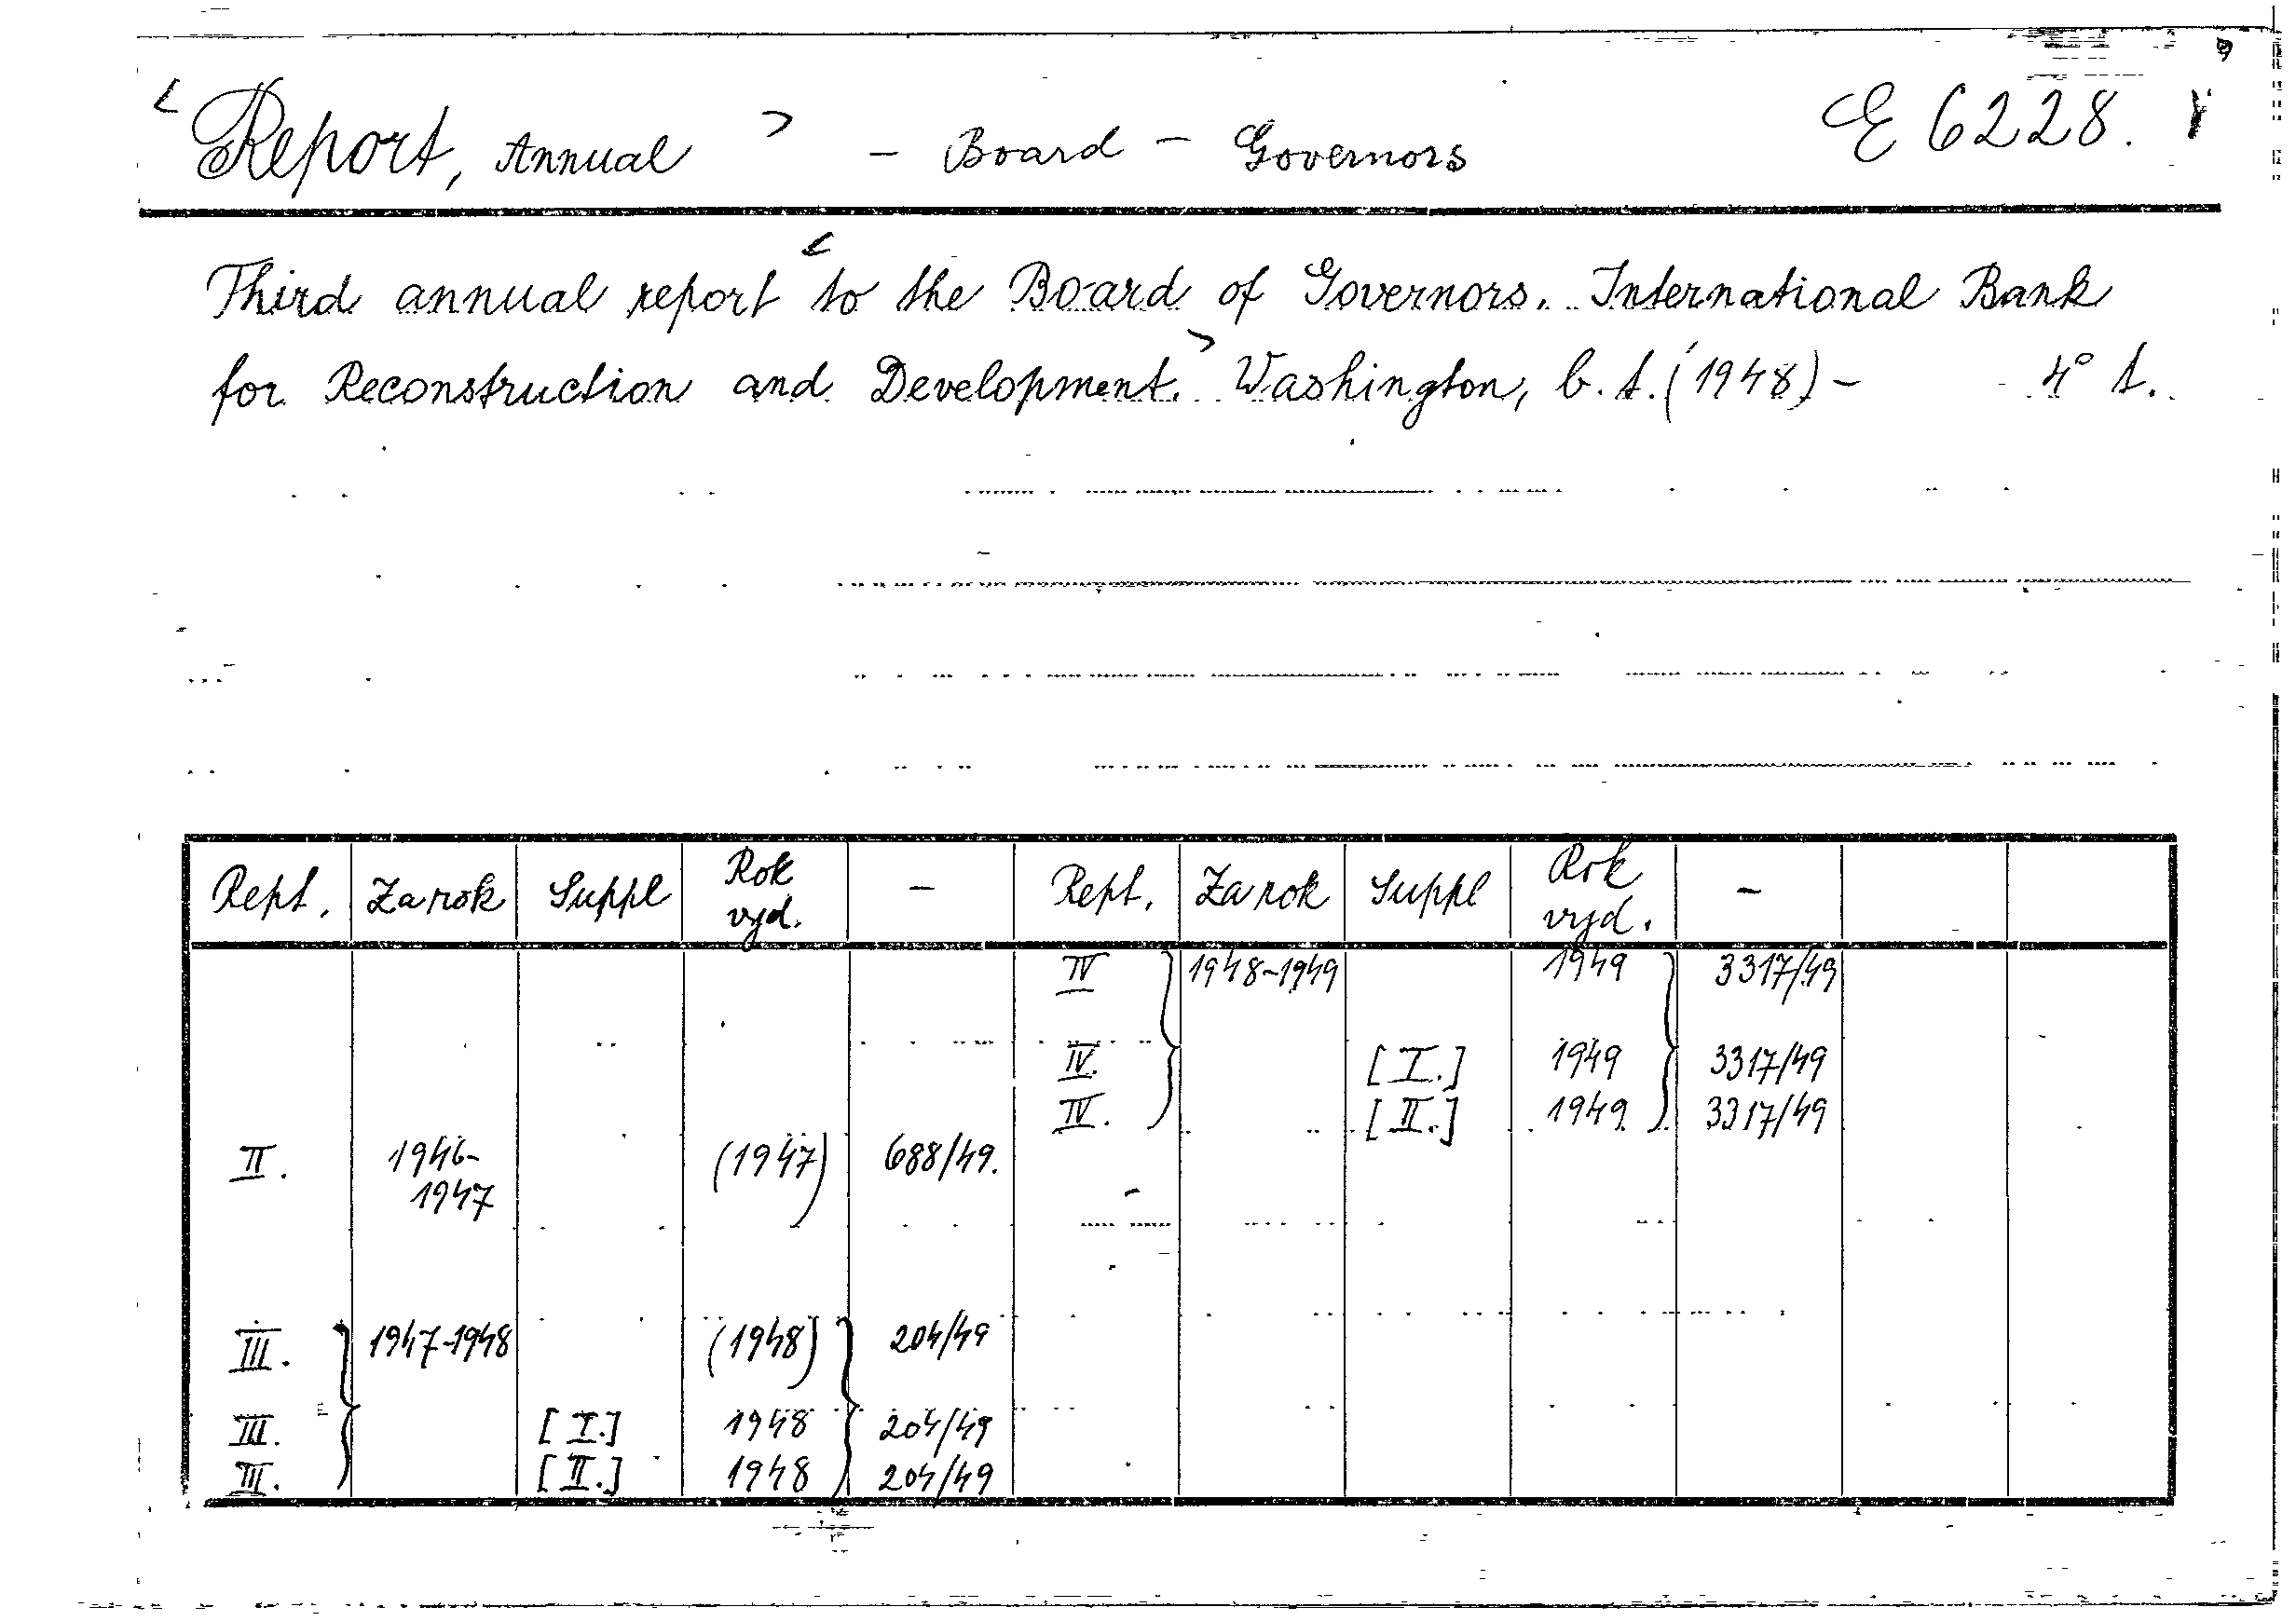 < Report, Annual > - Board - Governors E 6228.
Third annual report < to the Board of Governors. International Bank
for Reconstruction and Development. > Washington, b. t. (1948) - 4° t.
Rept. Za rok Suppl Rok vyd. - Rept. Za rok Suppl Rok vyd. -
IV 1948-1949 1949 3317/49
IV. [I.] 1949 3317/49
IV. [II.] 1949 3317/49
II. 1946-1947 (1947) 688/49.
III. 1947-1948 (1948) 204/49
III. [I.] 1948 204/49
III. [II.] 1948 204/49